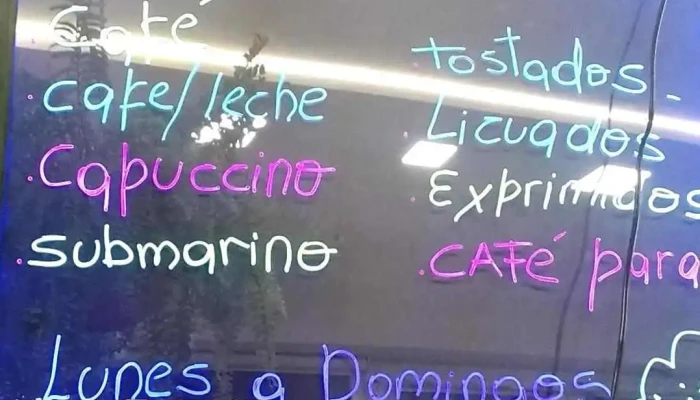 Café
.cafe/leche
.Capuccino
.submarino
.tostados.
.Licuados
.Exprimidos
.CAFÉ para
Lunes a Domingos